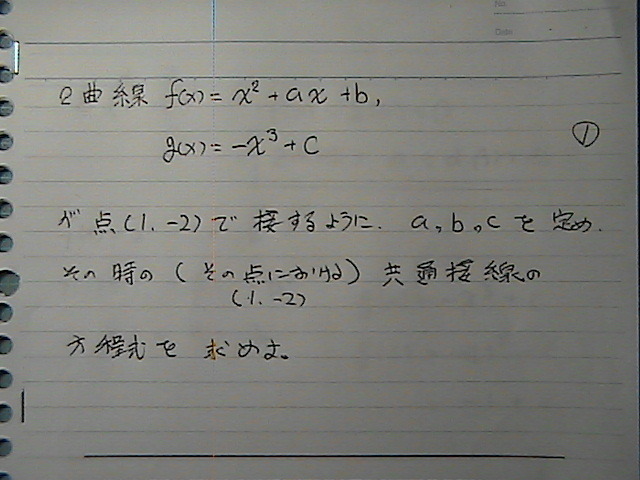 No.
Date
2曲線 f(x) = x² + ax + b,
g(x) = -x³ + C
①
が点(1, -2)で接するように. a, b, cを定め.
その時の(その点における)共通接線の
(1, -2)
方程式を求めよ。